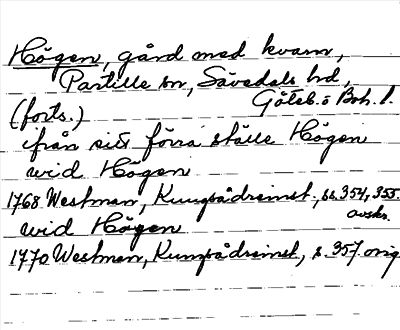 Högen, gård med kvarn,
Partille sn, Sävedals hd,
Göteb. o Boh. l.
(forts.)
ifrån sitt förra ställe Högen
wid Högen
1768 Westman, Kungsådreinst., ss. 354, 355.
avskr.
wid Högen
1770 Westman, Kungsådreinst, s. 357. orig